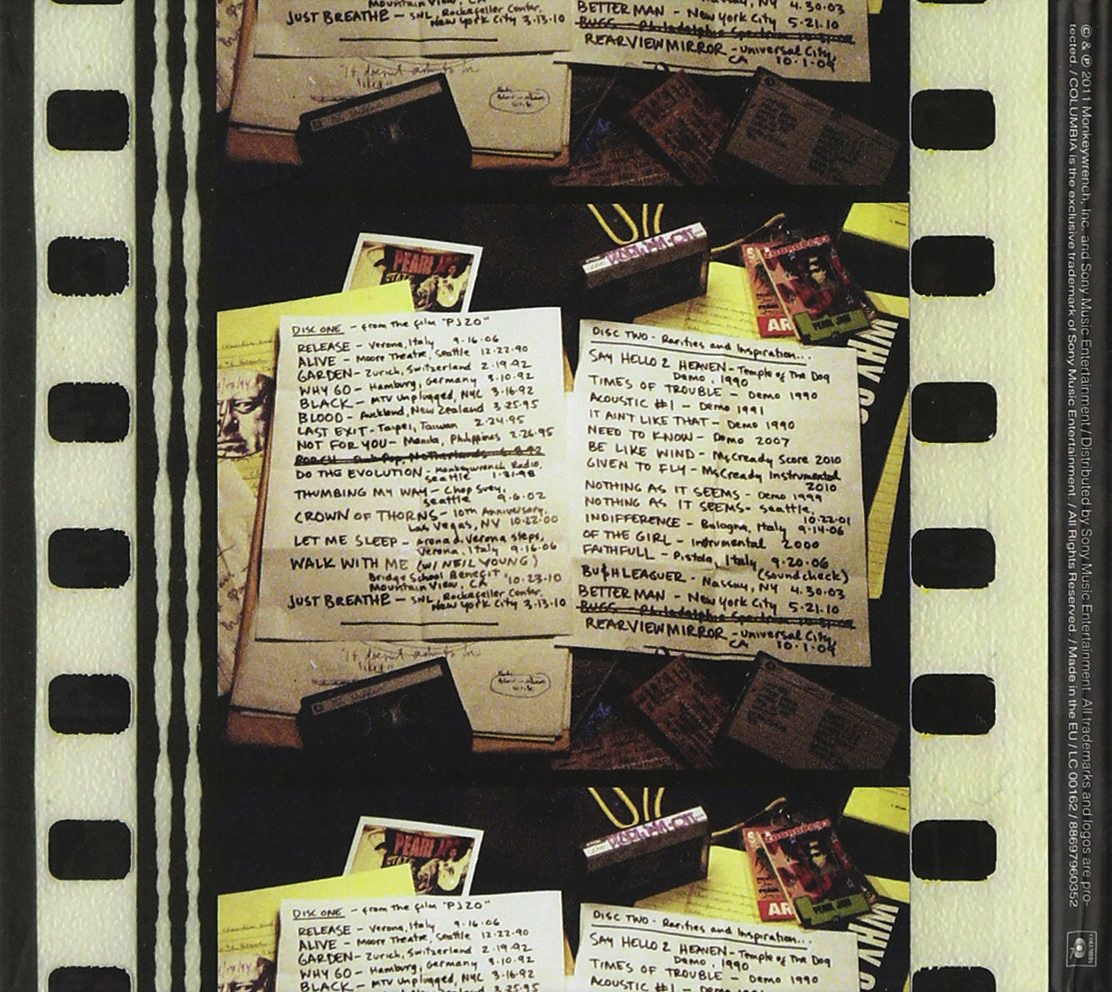 Mountain View, CA
JUST BREATHE - SNL, Rockefeller Center,
New York City 3.13.10
Nassau, NY 4.30.03
BETTER MAN - New York City 5.21.10
BUGS - Philadelphia Spectrum 10-31-09
REARVIEWMIRROR - Universal City,
CA 10.1.09
"It doesn't
PEARL JAM
DISC ONE - from The film "PJ20"
RELEASE - Verona, Italy 9.16.06
ALIVE - Moore Theatre, Seattle 12.22.90
GARDEN - Zurich, Switzerland 2.19.92
WHY GO - Hamburg, Germany 3.10.92
BLACK - MTV unplugged, NYC 3.16.92
BLOOD - Auckland, New Zealand 3.25.95
LAST EXIT - Taipei, Taiwan 2.24.95
NOT FOR YOU - Manila, Philippines 2.26.95
PORCH - PinkPop, Netherlands 6.8.92
DO THE EVOLUTION - Monkeywrench Radio,
Seattle 1.31.98
THUMBING MY WAY - Chop Suey,
Seattle 9.6.02
CROWN OF THORNS - 10th Anniversary,
Las Vegas, NV 10.22.00
LET ME SLEEP - Arena di Verona steps,
Verona, Italy 9.16.06
WALK WITH ME (w/ NEIL YOUNG)
Bridge School Benefit
Mountain View, CA '10.23.10
JUST BREATHE - SNL, Rockefeller Center,
New York City 3.13.10
DISC TWO - Rarities and Inspiration...
SAY HELLO 2 HEAVEN - Temple of The Dog
Demo, 1990
TIMES OF TROUBLE - Demo 1990
ACOUSTIC #1 - Demo 1991
IT AIN'T LIKE THAT - Demo 1990
NEED TO KNOW - Demo 2007
BE LIKE WIND - McCready Score 2010
GIVEN TO FLY - McCready Instrumental
2010
NOTHING AS IT SEEMS - Demo 1999
NOTHING AS IT SEEMS - Seattle,
10.22.01
INDIFFERENCE - Bologna, Italy 9.14.06
OF THE GIRL - Instrumental 2000
FAITHFULL - Pistoia, Italy 9.20.06
(soundcheck)
BU$HLEAGUER - Nassau, NY 4.30.03
BETTER MAN - New York City 5.21.10
BUGS - Philadelphia Spectrum 10-31-09
REARVIEWMIRROR - Universal City,
CA 10.1.09
PEARL JAM
AR
WHY GO
"It doesn't
PEARL JAM
DISC ONE - from The film "PJ20"
RELEASE - Verona, Italy 9.16.06
ALIVE - Moore Theatre, Seattle 12.22.90
GARDEN - Zurich, Switzerland 2.19.92
WHY GO - Hamburg, Germany 3.10.92
BLACK - MTV unplugged, NYC 3.16.92
3.25.95
DISC TWO - Rarities and Inspiration...
SAY HELLO 2 HEAVEN - Temple of The Dog
Demo, 1990
TIMES OF TROUBLE - Demo 1990
ACOUSTIC #1 - Demo 1991
PEARL JAM
AR
WHY G
© & ℗ 2011 Monkeywrench, Inc. and Sony Music Entertainment / Distributed by Sony Music Entertainment. All trademarks and logos are pro-
tected. / COLUMBIA is the exclusive trademark of Sony Music Entertainment. / All Rights Reserved. / Made in the EU / LC 00162 / 88697960352